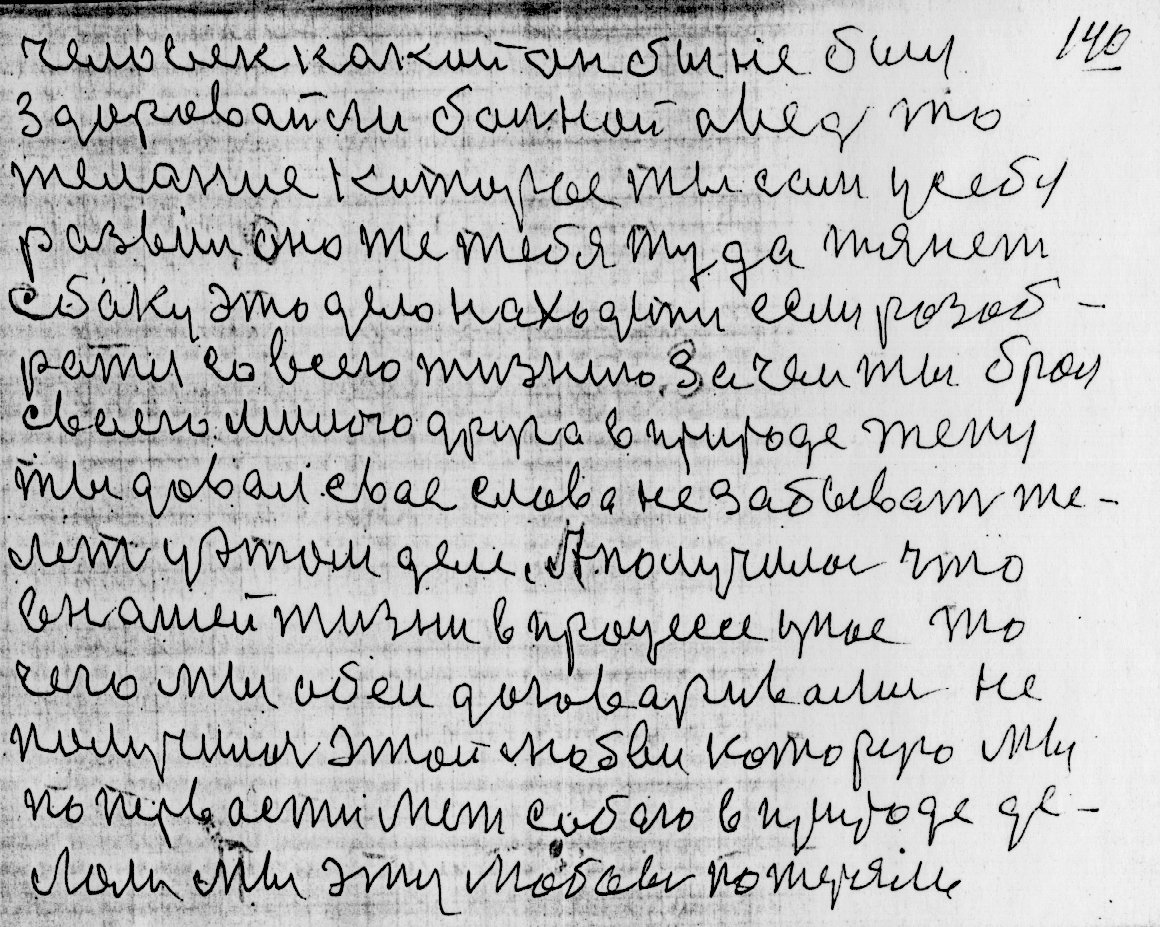 человек какий он бы не был 140
здоровай или больной авед то
желание которое ты сам у себя
развил оно же тебя туда тянет
сбаку это дело находити если розоб-
рати со всею жизнию. Зачем ты брал
своего милого друга в природе жену
ты довал свое слова не забыват же-
лет у этом деле. А получилос что
в нашей жизни в процессе уное то
чего мы обеи договаривали не
получилос этой любви которую мы
по первасти меж собою в природе де-
лали мы эту любовь потеряли